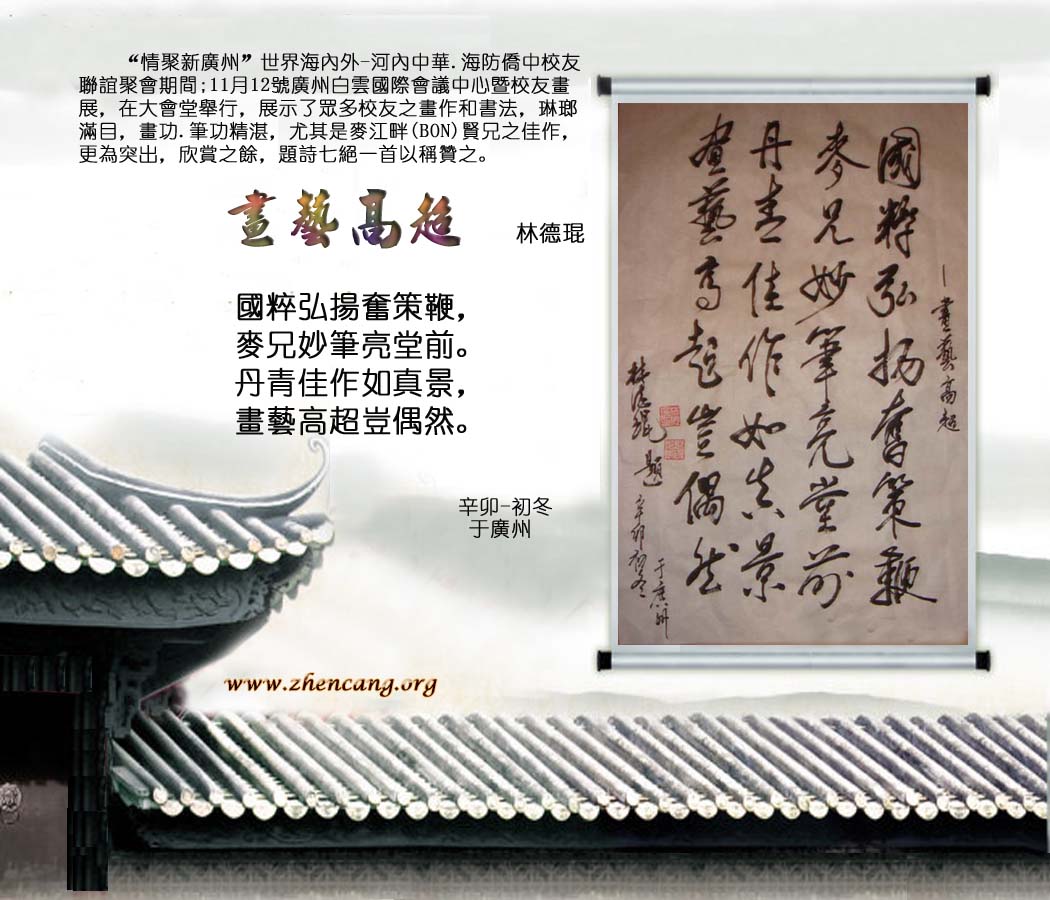 “情聚新廣州”世界海內外-河內中華.海防僑中校友
聯誼聚會期間;11月12號廣州白雲國際會議中心暨校友畫
展，在大會堂舉行，展示了眾多校友之畫作和書法，琳瑯
滿目，畫功.筆功精湛，尤其是麥江畔(BON)賢兄之佳作，
更為突出，欣賞之餘，題詩七絕一首以稱贊之。
畫藝高超
林德琨
國粹弘揚奮策鞭，
麥兄妙筆亮堂前。
丹青佳作如真景，
畫藝高超豈偶然。
辛卯-初冬
于廣州
www.zhencang.org
畫藝高超
國粹弘揚奮策鞭
麥兄妙筆亮堂前
丹青佳作如真景
畫藝高超豈偶然
林德琨題
辛卯初冬
于廣州